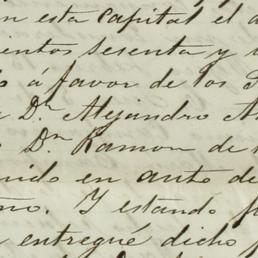 n esta capital el a
ientos sesenta y u
á favor de los
Dn. Alejandro A
Dn. Ramon de
nido en auto de
no. Y estando p
entregué dicho p